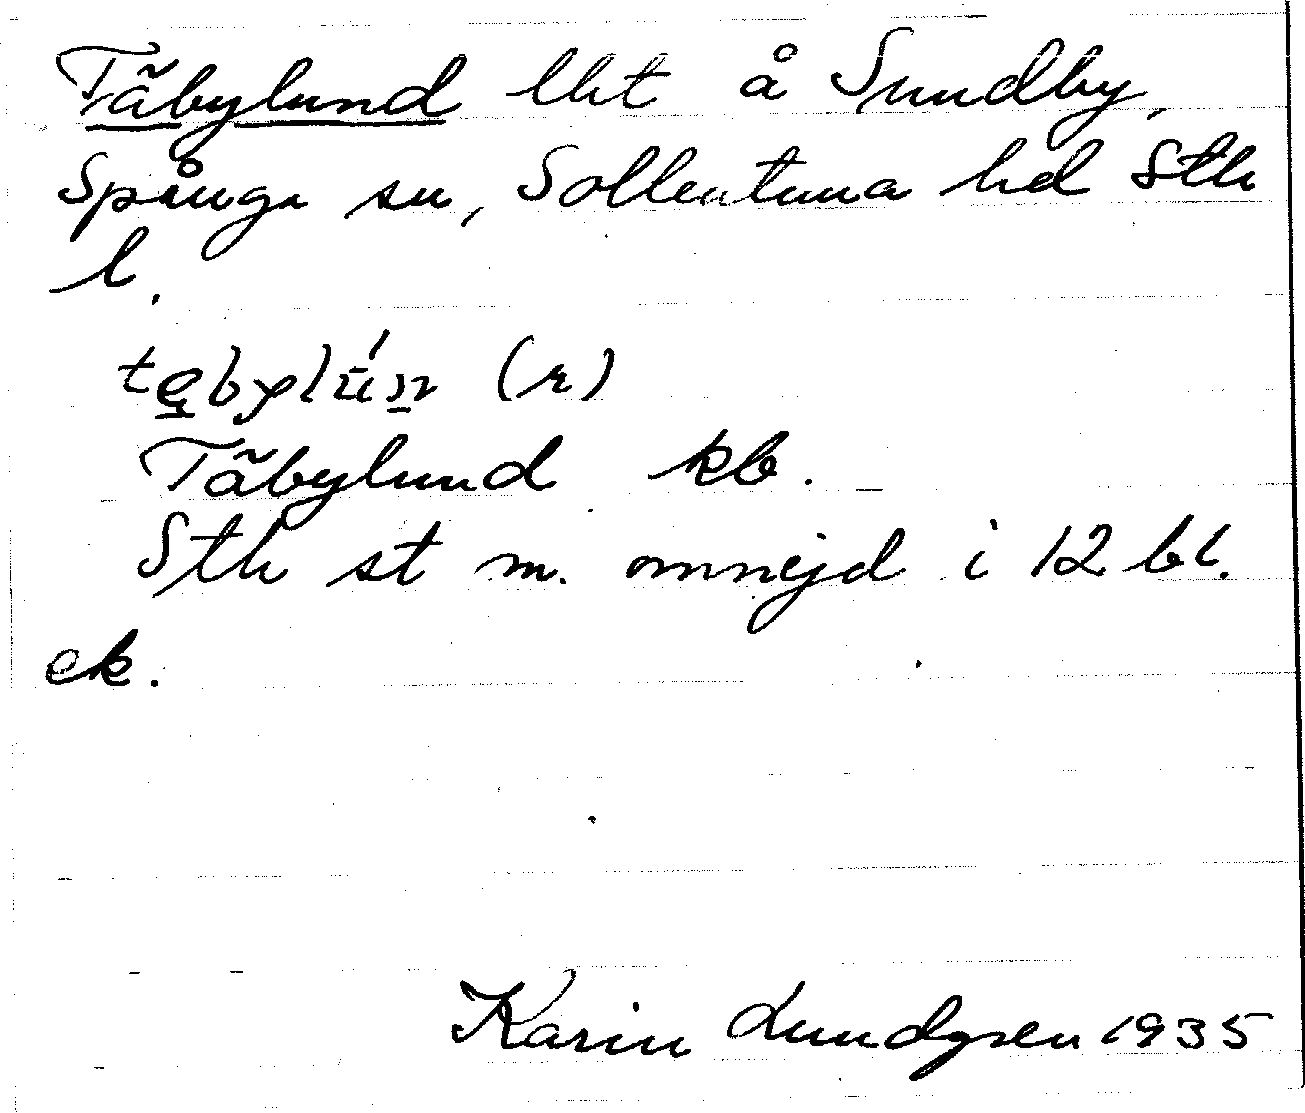 Täbylund lht å Sundby,
Spånga sn, Sollentuna hd Sth
l.
(r)
Täbylund kb.
Sth st m. omnejd i 12 bl.
ek.
Karin Lundgren 1935